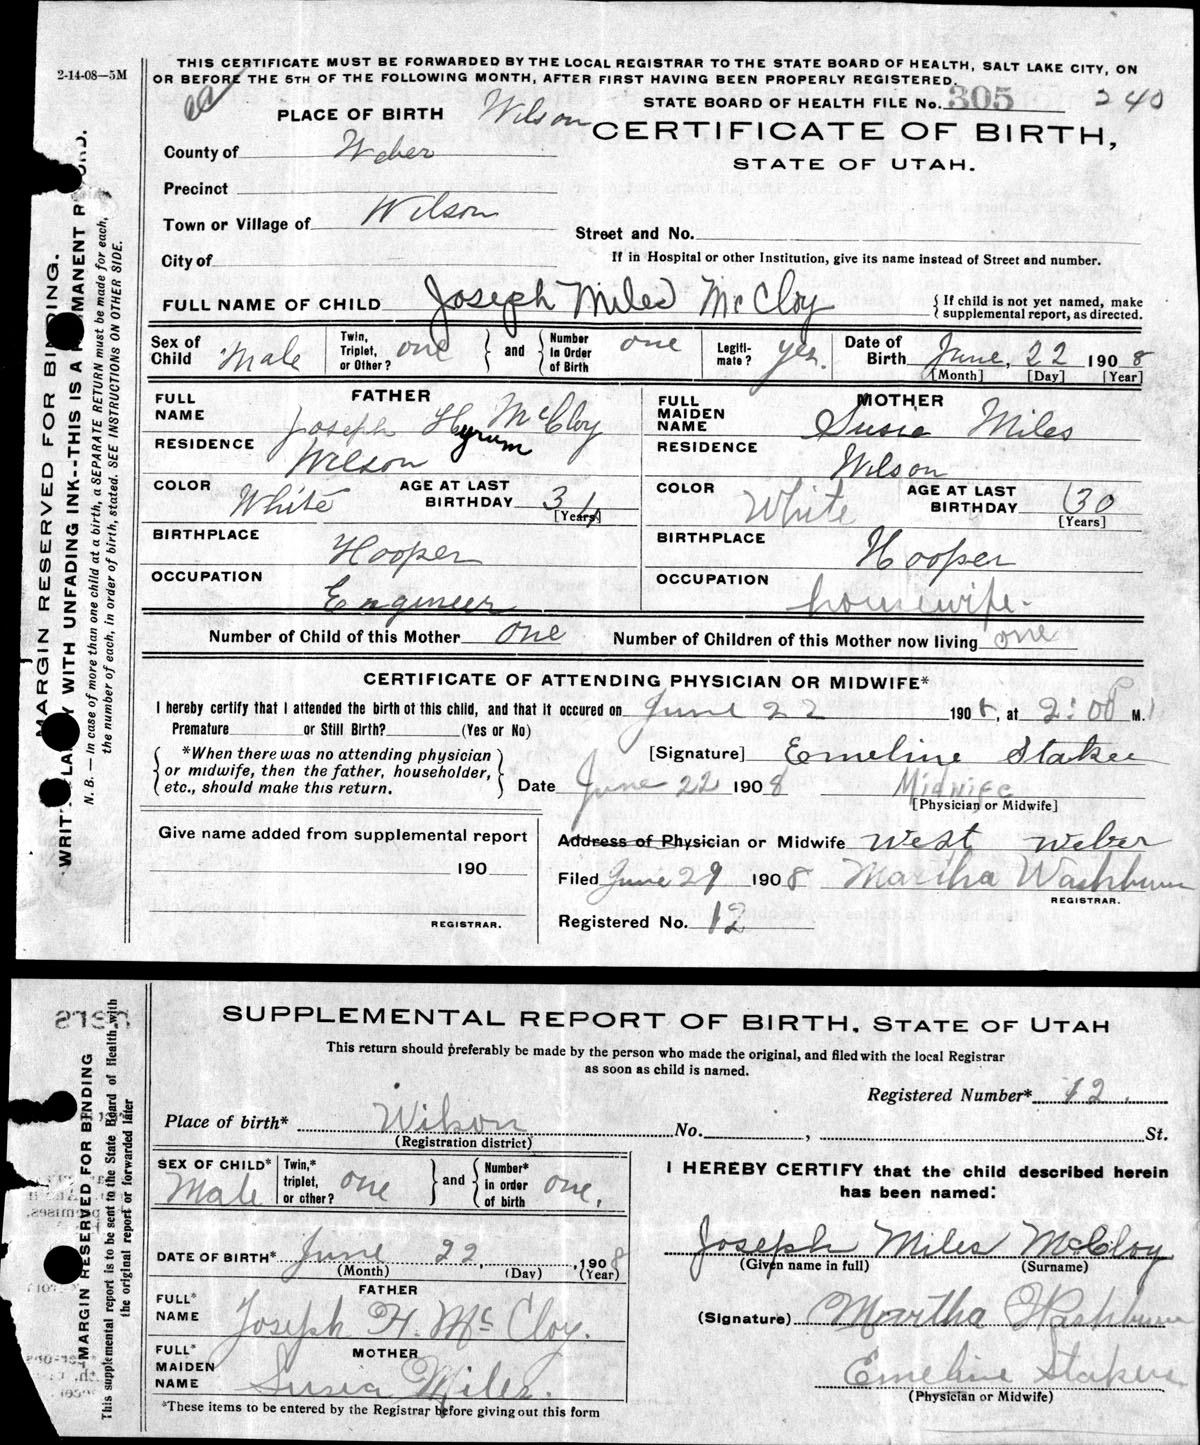 2-14-08—5M
THIS CERTIFICATE MUST BE FORWARDED BY THE LOCAL REGISTRAR TO THE STATE BOARD OF HEALTH, SALT LAKE CITY, ON
OR BEFORE THE 5TH OF THE FOLLOWING MONTH, AFTER FIRST HAVING BEEN PROPERLY REGISTERED.
STATE BOARD OF HEALTH FILE No. 305 240
PLACE OF BIRTH Wilson
CERTIFICATE OF BIRTH,
STATE OF UTAH.
County of Weber
Precinct
Town or Village of Wilson
Street and No.
City of
If in Hospital or other Institution, give its name instead of Street and number.
FULL NAME OF CHILD Joseph Miles McCloy
{ If child is not yet named, make
supplemental report, as directed.
Sex of Child Male
Twin, Triplet, or Other? one } and { Number In Order of Birth one
Legiti-mate? yes.
Date of Birth June, 22 1908
[Month] [Day] [Year]
FATHER
FULL NAME Joseph Hyrum McCloy
RESIDENCE Wilson
COLOR White AGE AT LAST BIRTHDAY 34
[Years]
BIRTHPLACE Hooper
OCCUPATION Engineer
MOTHER
FULL MAIDEN NAME Susie Miles
RESIDENCE Wilson
COLOR White AGE AT LAST BIRTHDAY 30
[Years]
BIRTHPLACE Hooper
OCCUPATION housewife.
Number of Child of this Mother one Number of Children of this Mother now living one
CERTIFICATE OF ATTENDING PHYSICIAN OR MIDWIFE*
I hereby certify that I attended the birth of this child, and that it occured on June 22 1908, at 2:00 P M.
Premature or Still Birth? (Yes or No)
*When there was no attending physician
or midwife, then the father, householder,
etc., should make this return.
[Signature] Emeline Staker
Date June 22 1908 Midwife
[Physician or Midwife]
Give name added from supplemental report
190
REGISTRAR.
Address of Physician or Midwife West Weber
Filed June 29 1908 Martha Washburn
REGISTRAR.
Registered No. 12
MARGIN RESERVED FOR BINDING.
WRITE PLAINLY WITH UNFADING INK--THIS IS A PERMANENT RECORD.
N. B. — In case of more than one child at a birth, a SEPARATE RETURN must be made for each,
the number of each, in order of birth, stated. SEE INSTRUCTIONS ON OTHER SIDE.
SUPPLEMENTAL REPORT OF BIRTH, STATE OF UTAH
This return should preferably be made by the person who made the original, and filed with the local Registrar
as soon as child is named.
Registered Number* 12.
Place of birth* Wilson No. , St.
(Registration district)
SEX OF CHILD* Male
Twin,* triplet, or other? one } and { Number* in order of birth one,
DATE OF BIRTH* June 22, 1908
(Month) (Day) (Year)
FATHER
FULL* NAME Joseph H. McCloy.
MOTHER
FULL* MAIDEN NAME Susia Miles.
*These items to be entered by the Registrar before giving out this form
I HEREBY CERTIFY that the child described herein
has been named:
Joseph Miles McCloy
(Given name in full) (Surname)
(Signature) Martha Washburn
Emeline Staker
(Physician or Midwife)
MARGIN RESERVED FOR BINDING
This supplemental report is to be sent to the State Board of Health, with
the original report or forwarded later